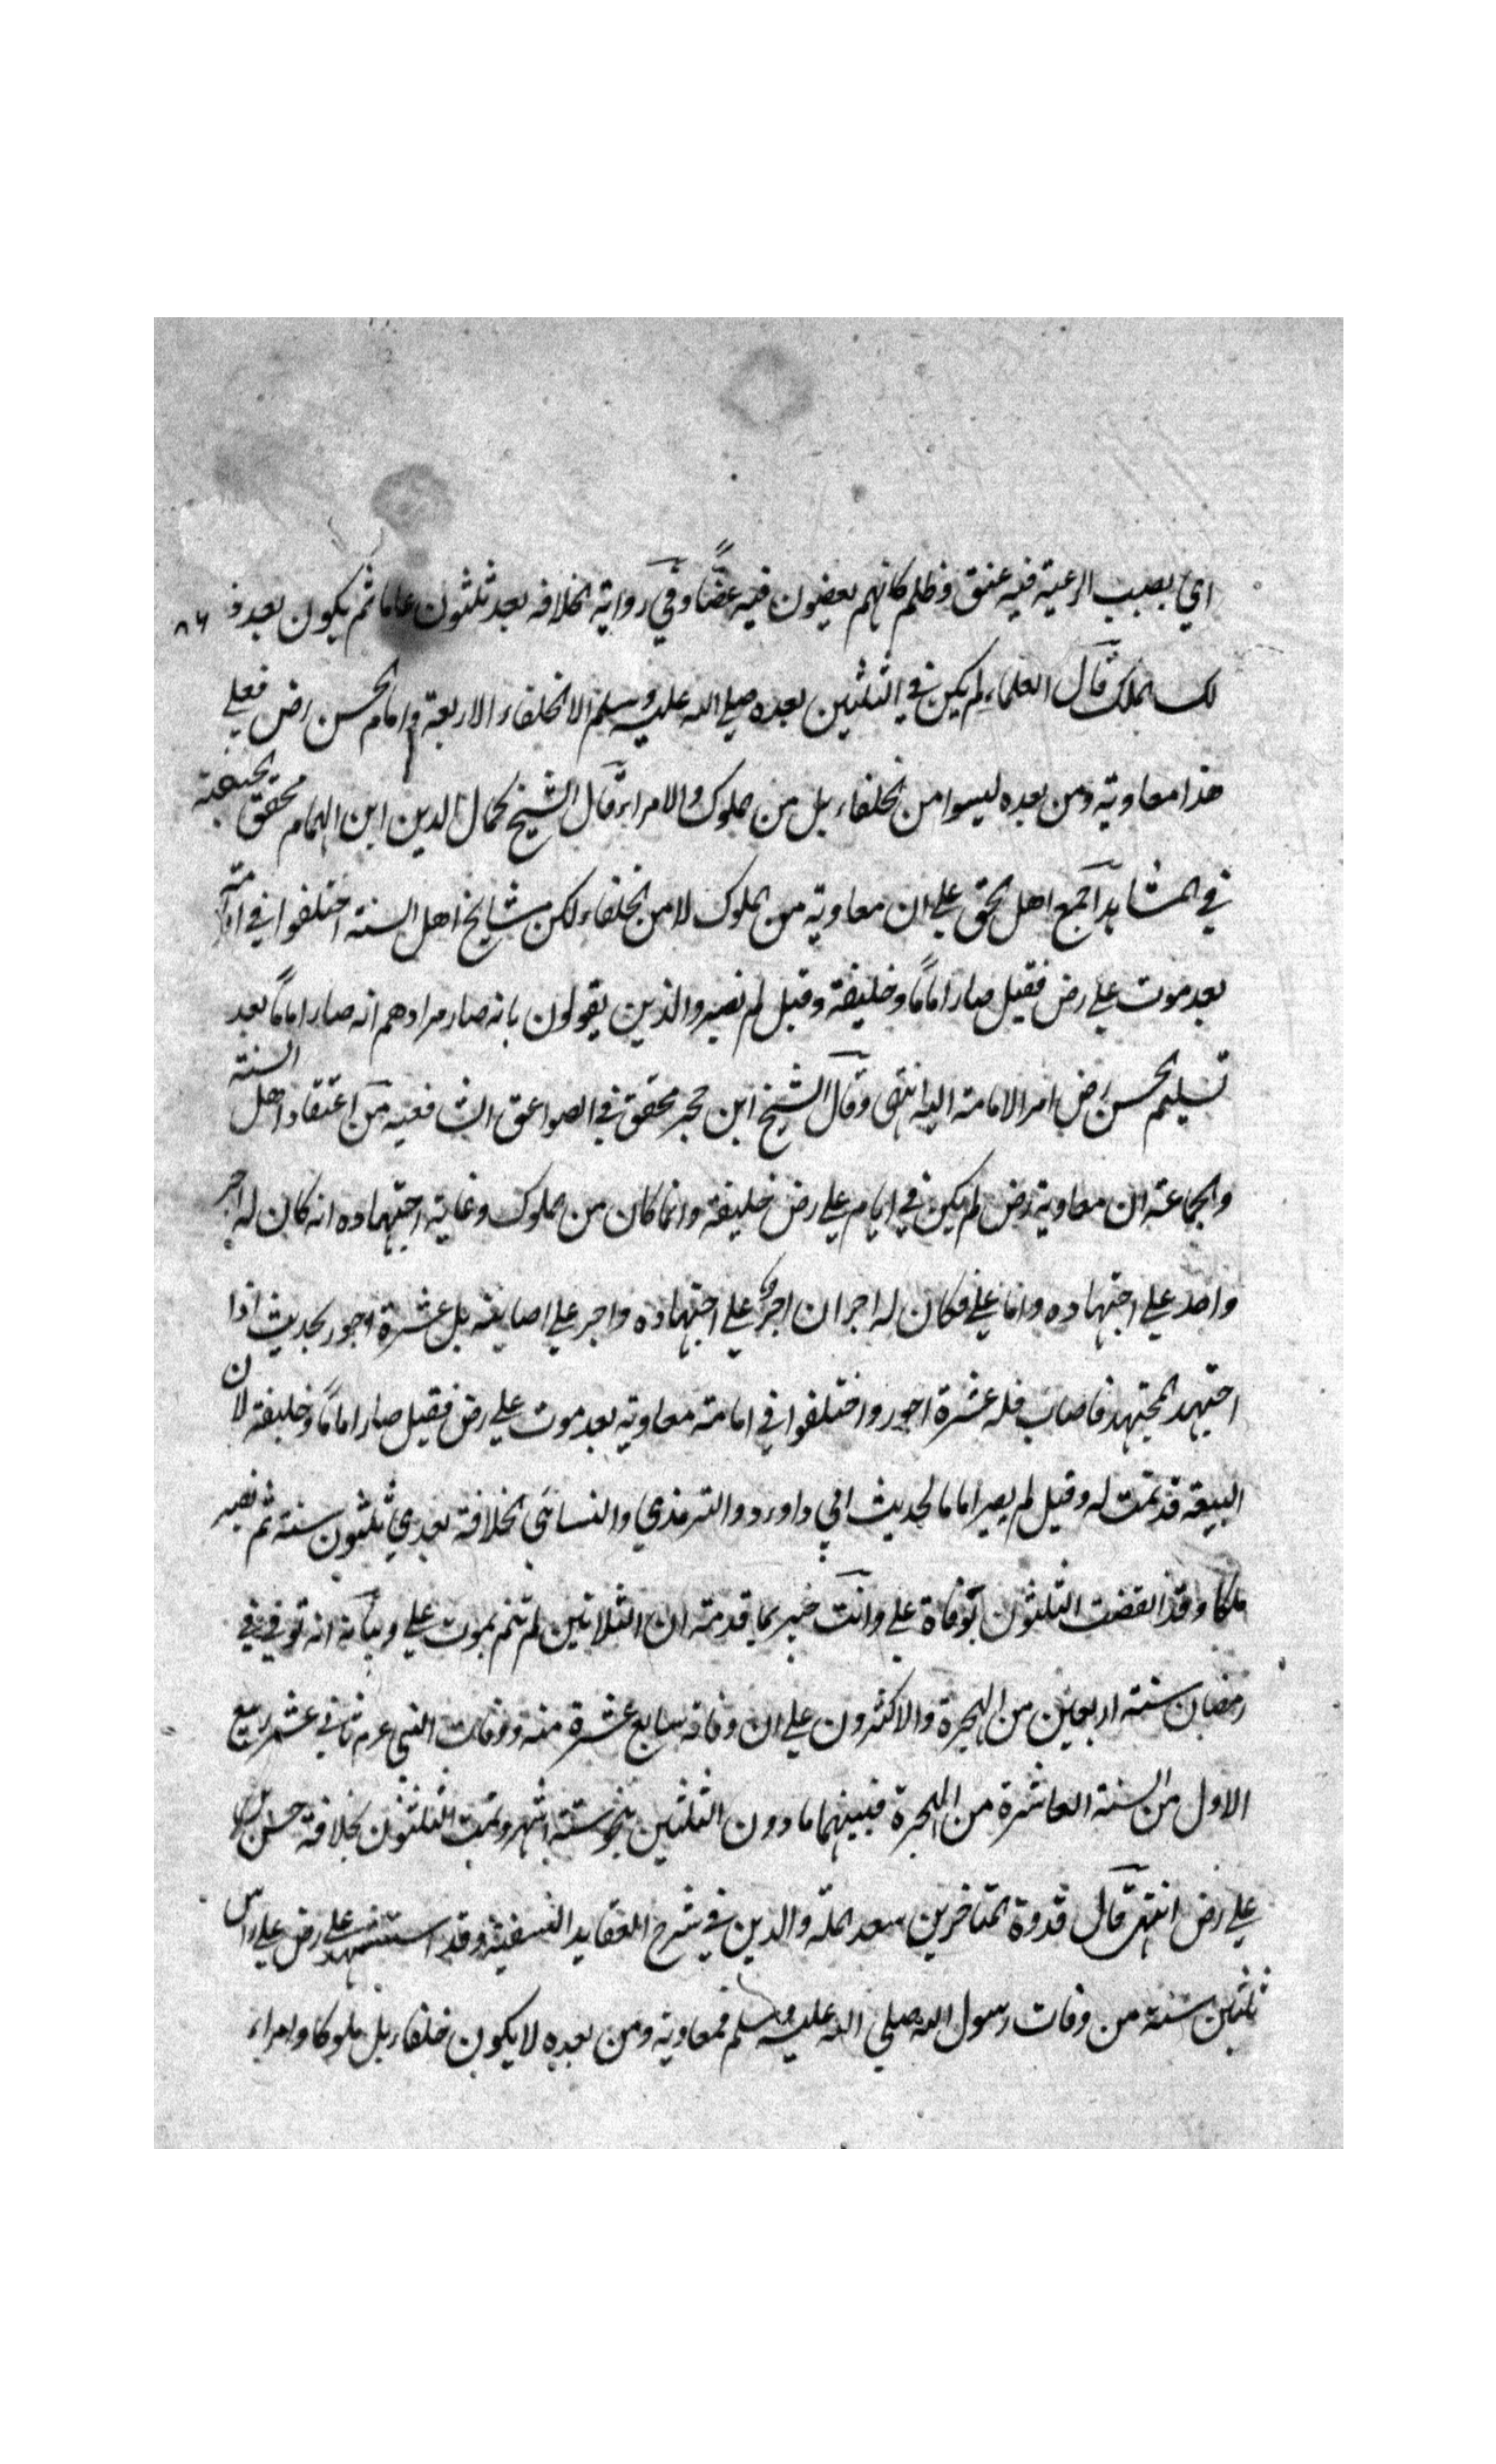 اي بصيب الرعية فيه عنف وظلم كانهم يعضون فيه عضًّا وفي رواية الخلافه بعد ثلثون عاما ثم يكون بعد ذ
لك الملك قال العلماء لم يكن في الثلثين بعده صلي الله عليه وسلم الا الخلفاء الاربعة وامام الحسن رض فعلي
هذا معاوية ومن بعده ليسوا من الخلفاء بل من الملوك والامراء قال الشيخ كمال الدين ابن الهمام محقق الحنفية
في المشاهد اجمع اهل الحق علي ان معاوية من الملوك لا من الخلفاء لكن مشايخ اهل السنة اختلفوا في امامته
بعد موت علي رض فقيل صار امامًا وخليفة وقيل لم نصير والذين يقولون بانه صار مرادهم انه صار امامًا بعد
تسليم الحسن رض امر الامامة اليه انتهى وقال الشيخ ابن حجر محقق في الصواعق الشافعيه من اعتقاد اهل السنة
والجماعة ان معاوية رض لم يكن في ايام علي رض خليفة وانما كان من الملوك وغاية اجتهاده انه كان له اجر
واحد علي اجتهاده واما علي فكان له اجران اجرٌ علي اجتهاده واجر علي اصابته بل عشرة اجور لحديث اذا
اجتهد المجتهد فاصاب فله عشرة اجور واختلفوا في امامة معاوية بعد موت علي رض فقيل صار امامًا وخليفة لان
البيعة قد تمت له وقيل لم يصير اماما لحديث ابي داورد والترمذي والنسائي الخلافة بعدي ثلثون سنة ثم تصير
ملكا وقد انقضت الثلثون بوفاة علي وانت خبير بما قدمته ان الثلاثين لم تتم بموت علي وبيانه انه توفي في
رمضان سنة اربعين من الهجرة والاكثرون علي ان وفاته سابع عشرة منه ووفات النبي عم ثاني عشر ربيع
الاول من السنة العاشرة من الهجرة فبينهما مادون الثلثين بنحو ستة اشهر وتمت الثلثون بخلافة حسن بن
علي رض انتهى قال قدوة المتاخرين سعد الملة والدين في شرح العقايد النسفية وقد استشهد علي رض علي راس
ثلثين سنة من وفات رسول الله صلي الله عليه وسلم فمعاوية ومن بعده لا يكون خلفاء بل ملوكا وامراء